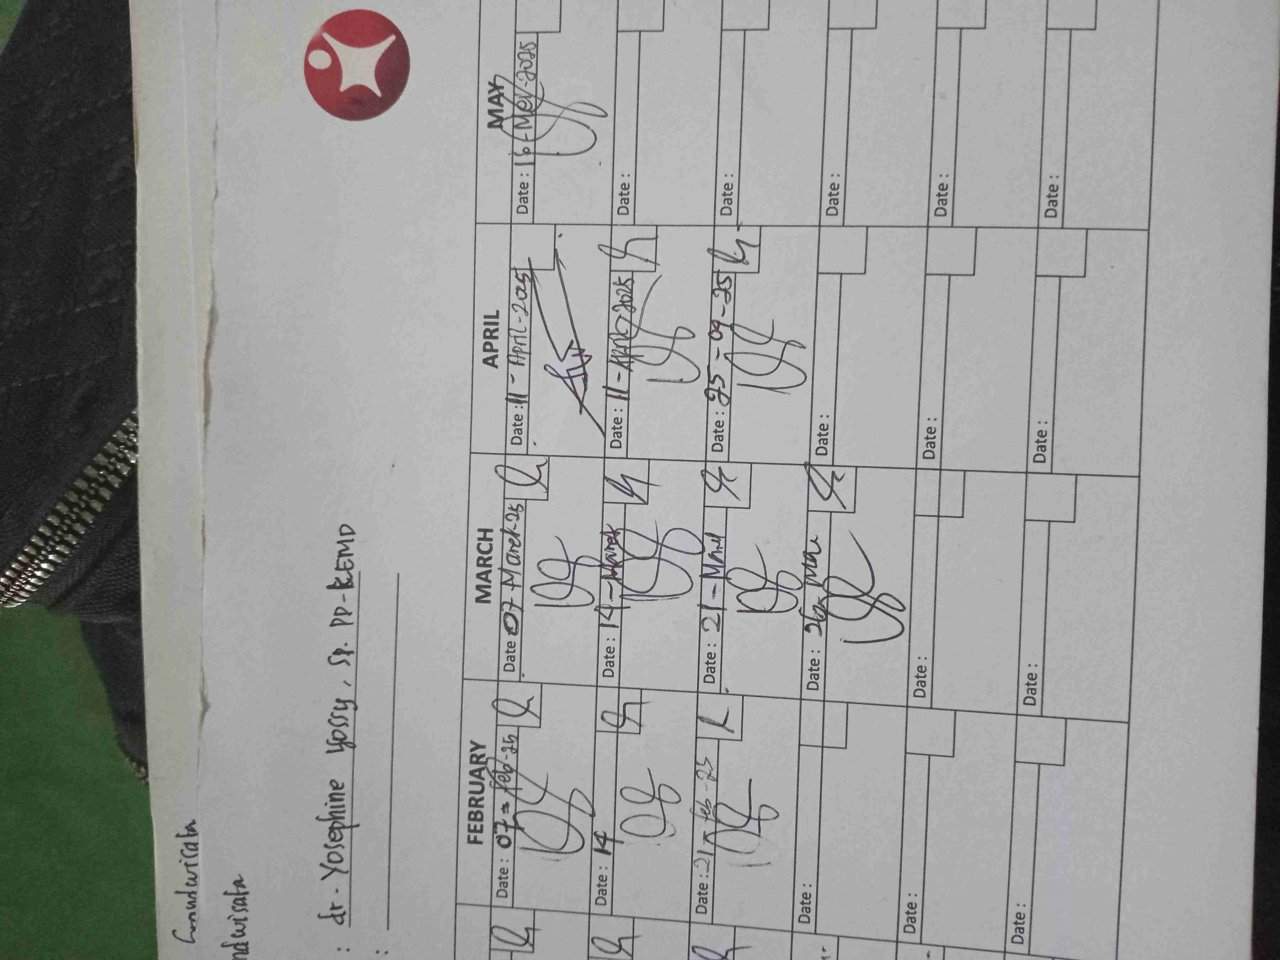 Grandwisata
ndwisata
: dr. Yosephine Yossy, Sp. PD-KEMD
:
FEBRUARY MARCH APRIL MAY
Date: 07-feb-25 Date 07-Maret-25 Date: 11-April-2025 Date: 16-Mei-2025
Date: 14 Date: 14-Maret Date: 11-April-2025 Date:
Date: 21-feb-25 Date: 21-Maret Date: 25-04-25 Date:
Date: Date: 26- Date: Date:
Date: Date: Date: Date:
Date: Date: Date: Date: